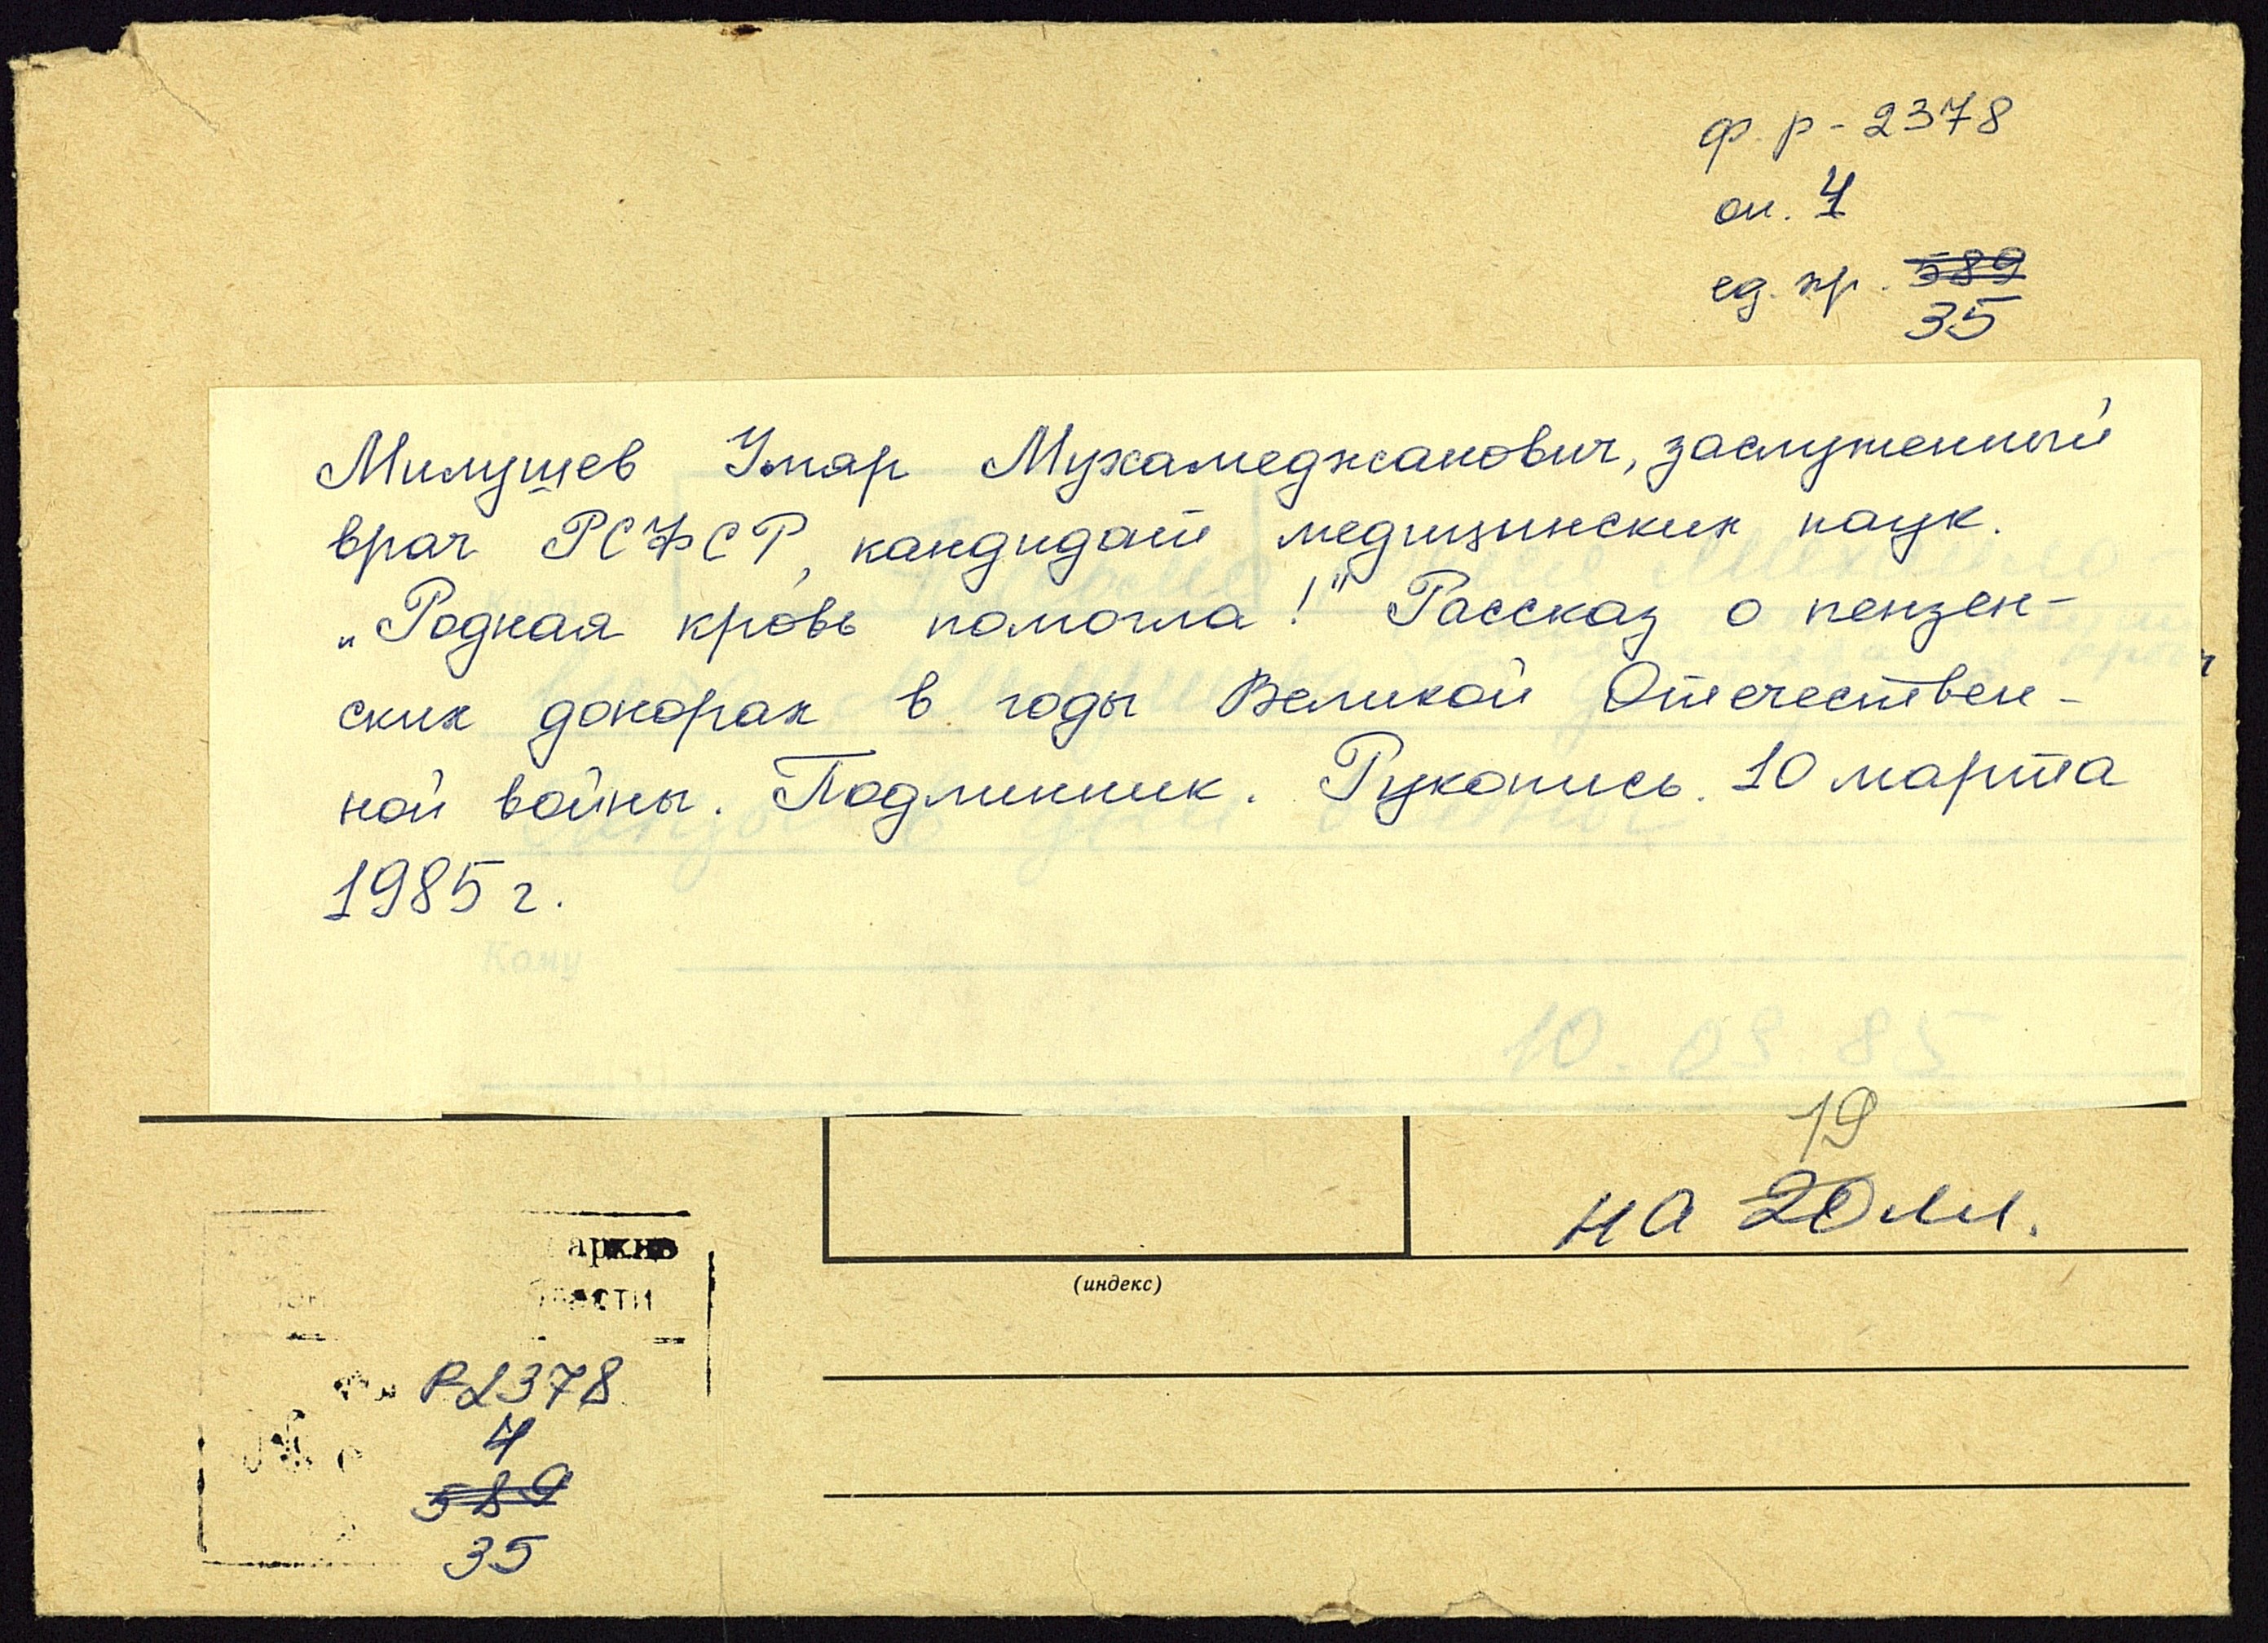 ф. р - 2378
оп. 4
ед. хр. 589
35
Милушев Умяр Мухамеджанович, заслуженный
врач РСФСР, кандидат медицинских наук.
„Родная кровь помогла!" Рассказ о пензен-
ских донорах в годы Великой Отечествен-
ной войны. Подлинник. Рукопись. 10 марта
1985 г.
Кому
10. 03 85
19
на 20 лл.
(индекс)
архив
области
Р2378
4
589
35